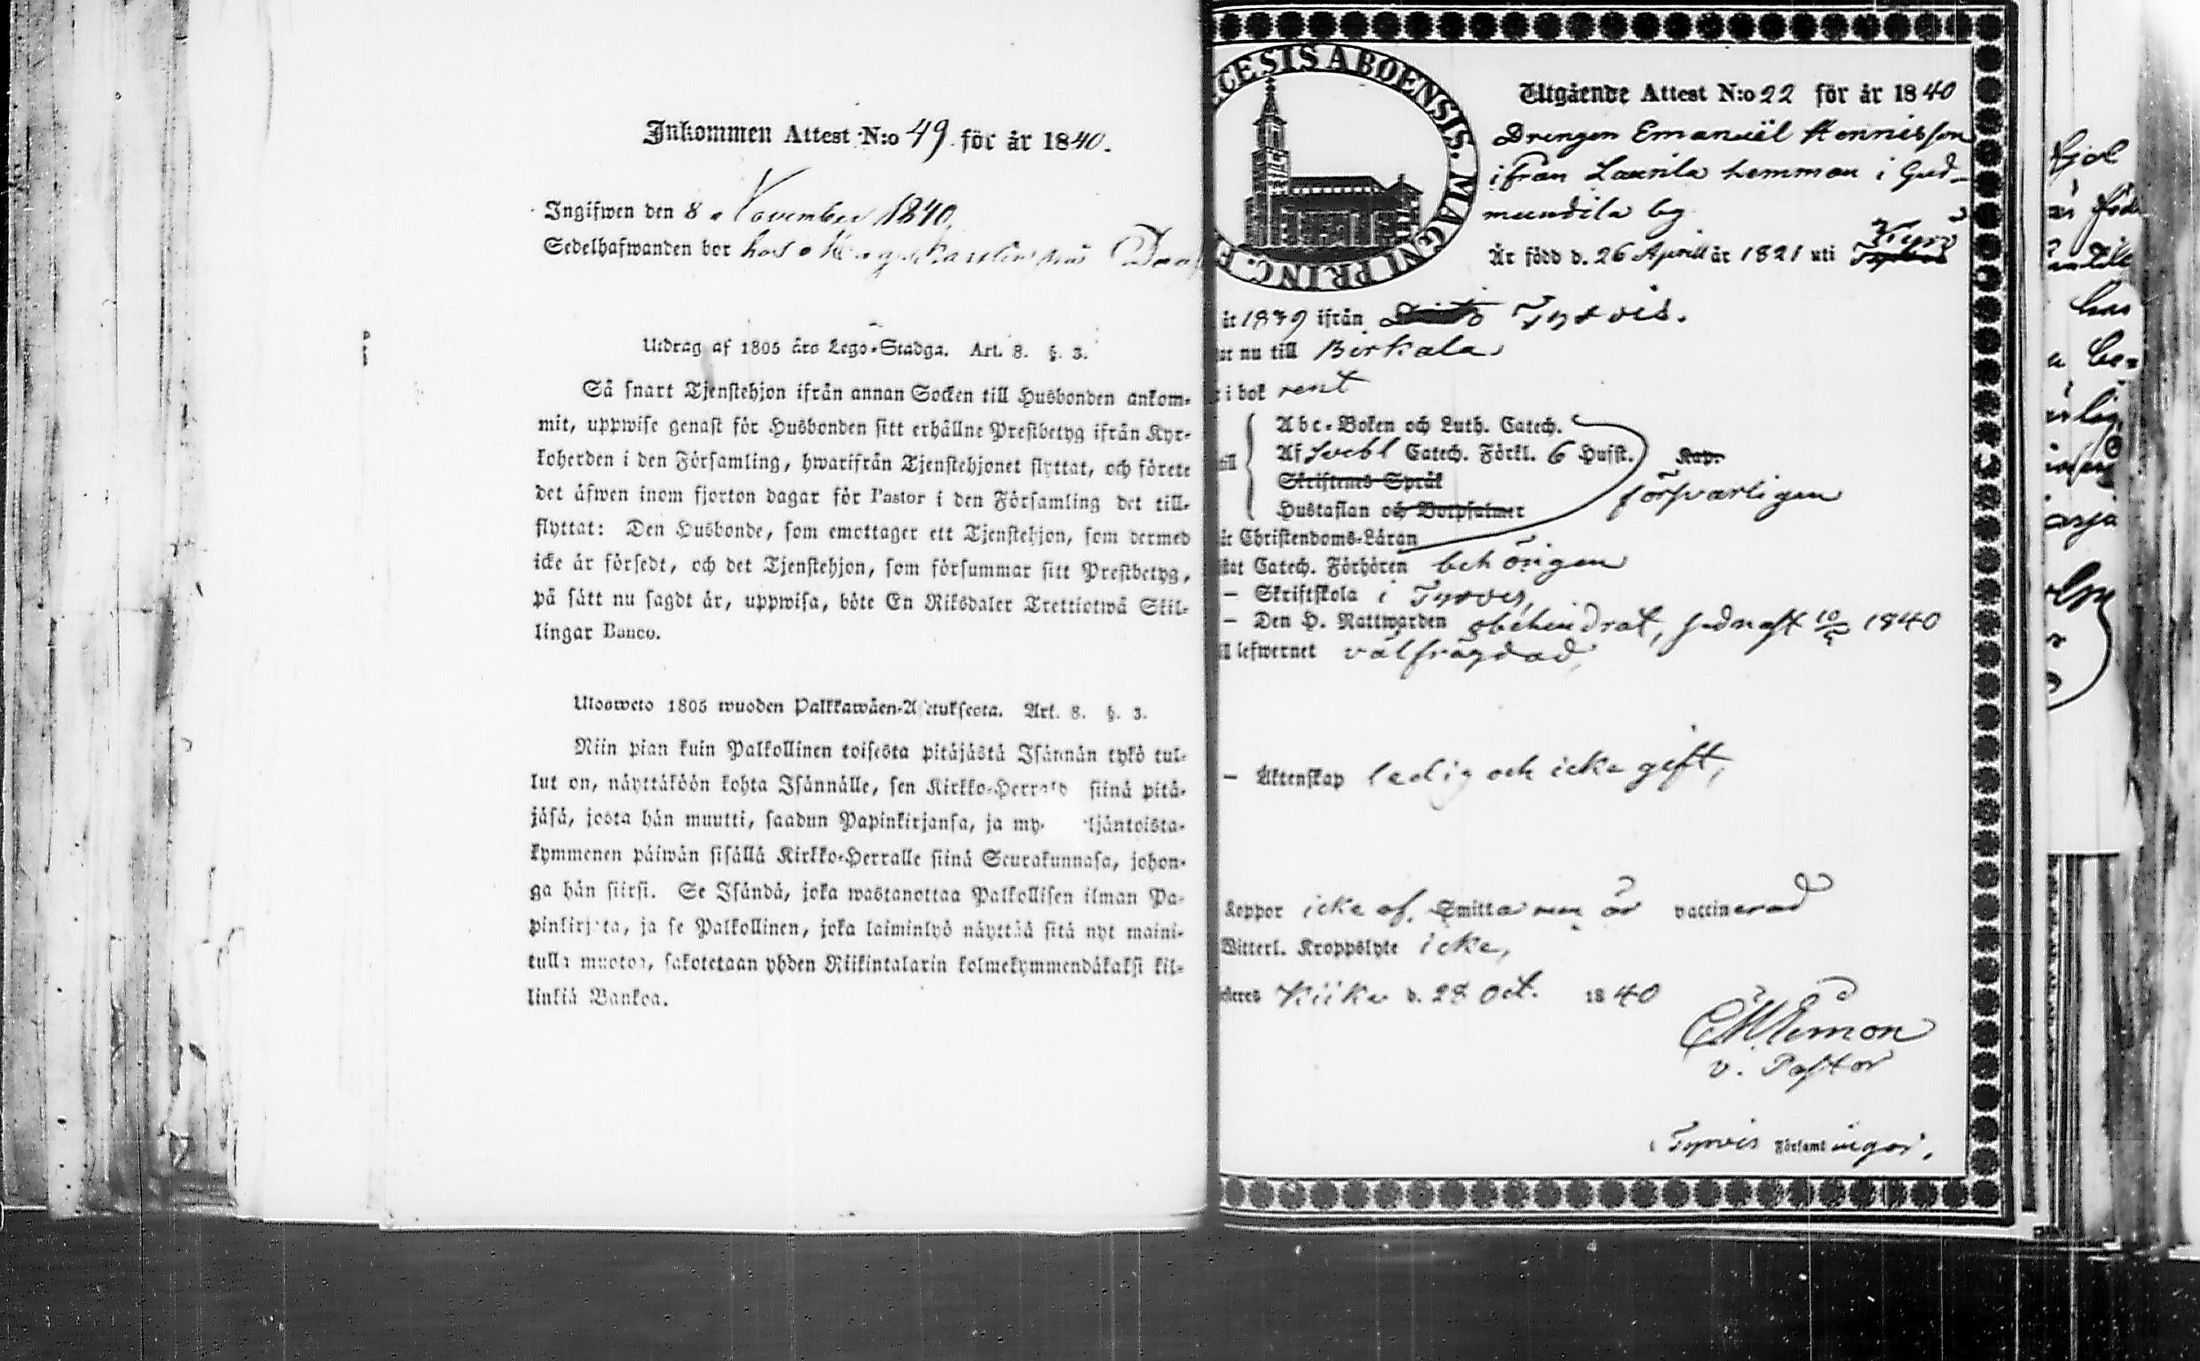 Inkommen Attest N:o 49 för år 1840.
Ingifwen den 8 November 1840.
Sedelhafwanden bor hos
Utdrag af 1805 års Lego-Stadga. Art. 8. §. 3.
Så snart Tjenstehjon ifrån annan Socken till Husbonden ankom-
mit, uppwise genast för Husbonden sitt erhållne Prestbetyg ifrån Kyr-
koherden i den Församling, hwarifrån Tjenstehjonet flyttat, och förete
det äfwen inom fjorton dagar för Pastor i den Församling det till-
flyttat: Den Husbonde, som emottager ett Tjenstehjon, som dermed
icke är försedt, och det Tjenstehjon, som försummar sitt Prestbetyg,
på sätt nu sagdt är, uppwisa, böte En Riksdaler Trettiotwå Skil-
lingar Banco.
Ulosweto 1805 wuoden Palkkawäen-Asetuksesta. Art. 8. §. 3.
Niin pian kuin Palkollinen toisesta pitäjästä Isännän tykö tul-
lut on, näyttäköön kohta Isännälle, sen Kirkko-Herralta siinä pitä-
jäsä, josta hän muutti, saadun Papinkirjansa, ja my ljäntoista-
kymmenen päiwän sisällä Kirkko-Herralle siinä Seurakunnasa, johon-
ga hän siirsi. Se Isändä, joka wastanottaa Palkollisen ilman Pa-
pinkirjata, ja se Palkollinen, joka laiminlyö näyttää sitä nyt maini-
tulla muotoa, sakotetaan yhden Riikintalarin kolmekymmendäkaksi kil-
linkiä Bankoa.
ECESIS ABOENSIS. MAGNI PRINC. F
Utgående Attest N:o 22 för år 1840
Drengen Emanuël Hennisson
ifrån Laurila hemman i Gud-
mundila by
Kyro
Är född d. 26 April år 1821 uti
år 1839 ifrån Tyrvis.
nu till Birkala
i bok rent
Abc-Boken och Luth. Catech.
Af Svebl Catech. Förkl. 6 Hufst. Kap.
Skriftenes Språk
försvarligen
Hustaflan och Botpsalmer
Christendoms-Läran
Catech. Förhören behörigen
– Skriftskola i Tyrvis,
– Den H. Nattwarden obehindrat, sednast 10/5 1840
lefwernet välfrägdad,
– Äktenskap ledig och icke gift,
Koppor icke af. Smitta men är vaccinerad
Witterl. Kroppslyte icke,
Kiika d. 28 Oct. 1840
v. Pastor
i Tyrvis Församlingar.